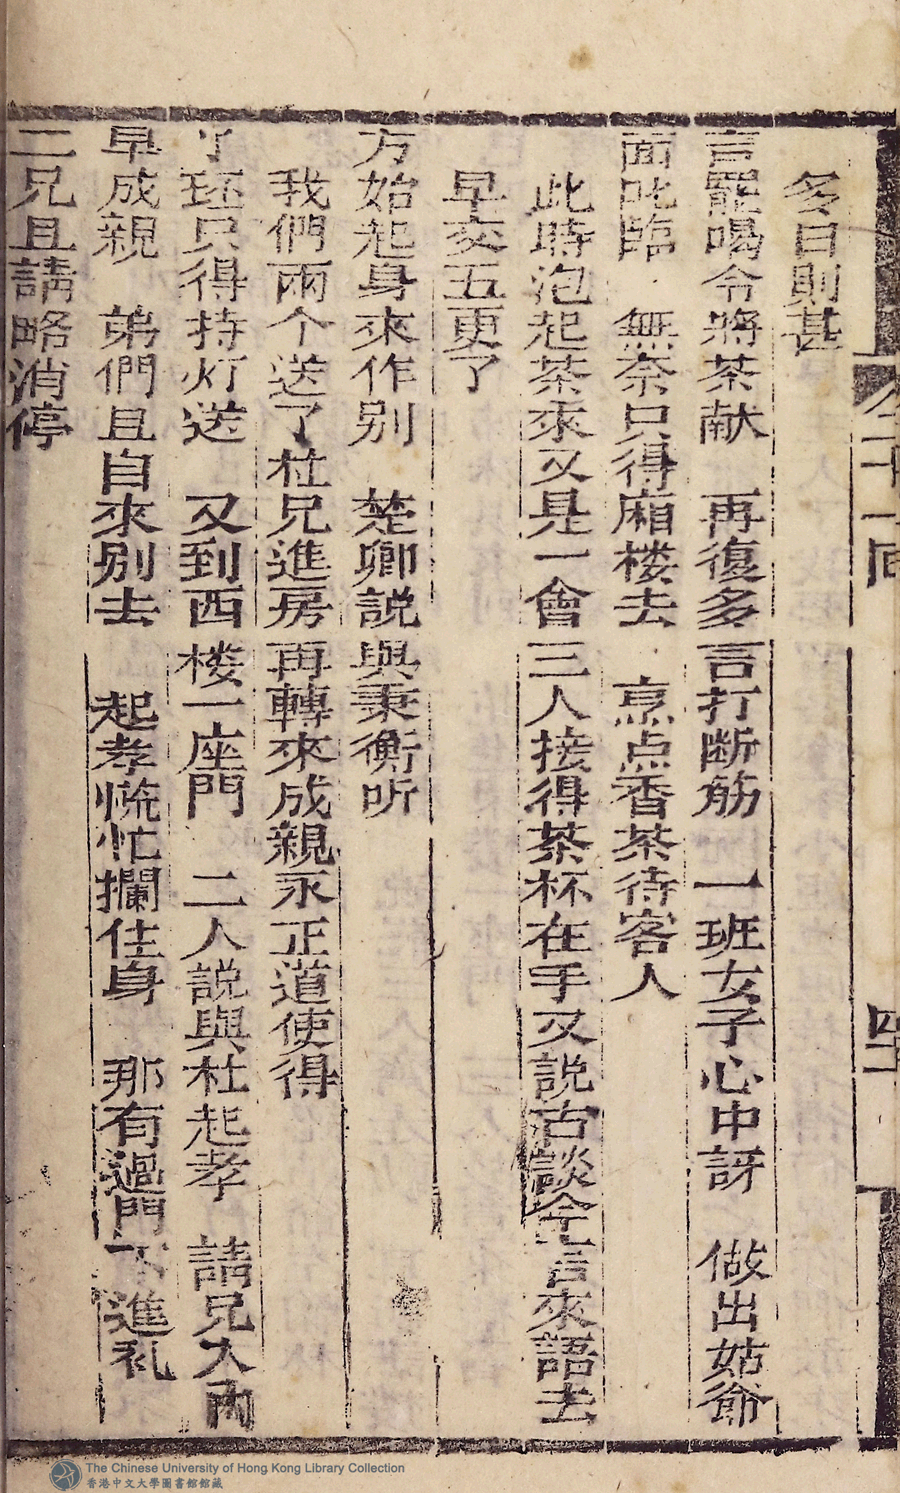 多日則甚
言罷喝令將茶献　再復多言打断筋　一班女子心中訝　做出姑爺
面叱臨　無奈只得廂楼去　烹点香茶待客人
此時泡起茶來又是一會三人接得茶杯在手又説古談今言來語去
早交五更了
方始起身來作别　楚卿説與秉衡听
我們兩个送了杜兄進房再轉來成親永正道使得
了珏只得持灯送　又到西楼一座門　二人説與杜起孝　請兄入内
早成親　弟們且自來别去　起孝慌忙攔住身　那有過門不進礼
二兄且請略消停
二十一回
四
The Chinese University of Hong Kong Library Collection
香港中文大學圖書館館藏